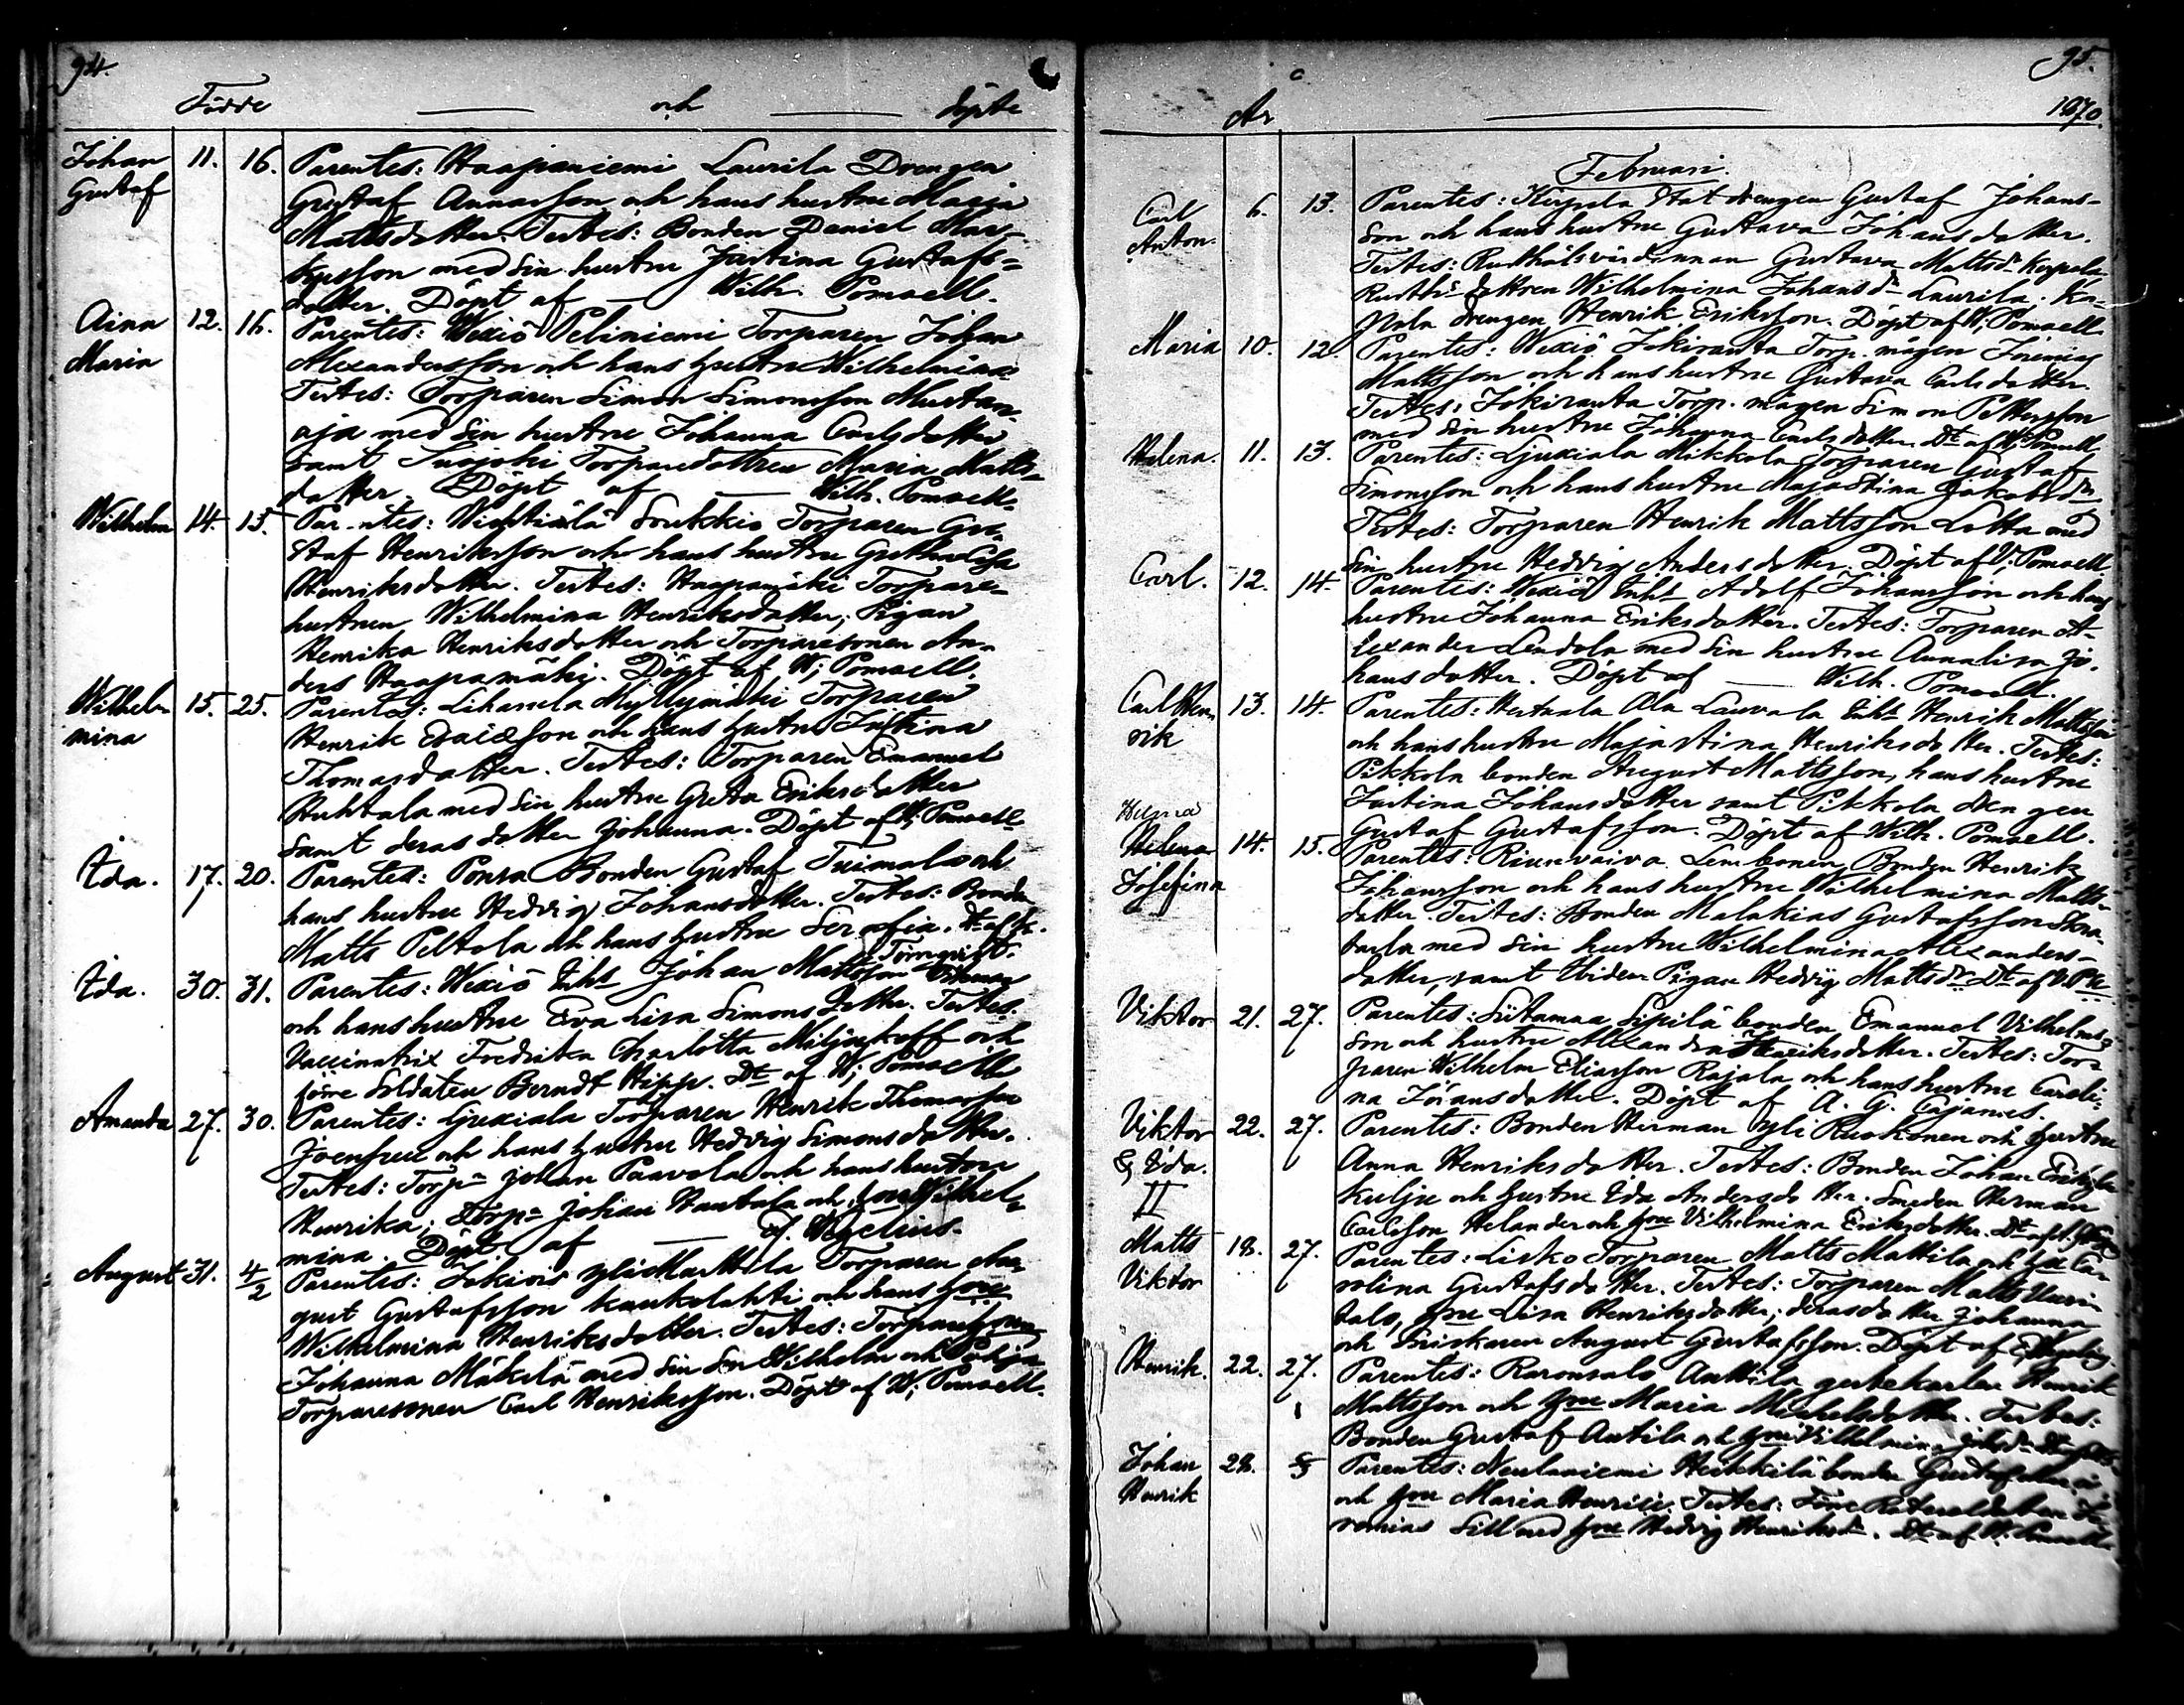 94.
Födde och döpte
Johan Gustaf 11. 16. Parentes: Haapaniemi Laurila Drengen
Gustaf Annasson och hans hustru Maria
Mattsdotter. Testes: Bonden Daniel Mar-
kusson med sin hustru Justina Gustafs=
dotter. Döpt af — Wilh. Pomoell.
Aina Maria 12. 16. Parentes: Wexiö Peliniemi Torparen Johan
Alexandersson och hans hustru Wilhelmina
Testes: Torparen Simon Simonsson Mustan-
oja med sin hustru Johanna Carlsdotter
samt Suojoki Torparedottren Maria Matts-
dotter. Döpt af — Wilh. Pomoell.
Wilhelm 14. 15. Parentes: Soukkio Torparen Gu-
staf Henriksson och hans hustru Gustava Cajsa
Henriksdotter. Testes: Haapamäki Torpare-
hustrun Wilhelmina Henriksdotter, Pigan
Henrika Henriksdotter och Torparesonen An-
ders Haapamäki. Döpt af W; Pomoell.
Wilhel- mina 15. 25. Parentes: Lihasula Myllymäki Torparen
Henrik Davidsson och hans hustru Justina
Thomasdotter. Testes: Torparen Emanuel
Huhtala med sin hustru Greta Eriksdotter
samt deras dotter Johanna. Döpt af W; Pomoell
Ida. 17. 20. Parentes: Ponsa Bonden Gustaf Tuimala och
hans hustru Hedvig Johansdotter. Testes: Bonden
Matts Peltola och hans hustru Serafia. Dt af K.
Törnqvist.
Ida. 30. 31. Parentes: Wexiö Inht Johan Mattsson
och hans hustru Eva Lisa Simonsdotter. Testes:
Vaccinatrix Fredrika Charlotta Miljukoff och
före Soldaten Berndt Hipp. Dt af W; Pomoell
Amanda 27. 30. Parentes: Ljuxiala Torparen Henrik Thomasson
Joensuu och hans hustru Hedvig Simonsdotter.
Testes: Torpn Johan Paavola och hans hustru
Henrika; Torpn Johan Hautala och hru Wilhel-
mina. Döpt. af — Wegelius.
August 31. 4/2 Parentes: Jokiois yli Marttila Torparen Au-
gust Gustafsson Kaukolahti och hans hru
Wilhelmina Henriksdotter. Testes: Torparehrun
Johanna Mäkelä med sin Son Wilhelm och
Torparesonen Carl Henriksson. Döpt af W; Pomoell.
95.
År 1870.
Februari.
Carl Anton. 6. 13. Parentes: Stat drengen Gustaf Johans-
son och hans hustru Gustava Johansdotter.
Testes: Rusthålsvärdinnan Gustava Mattsdr
Rusth: dottren Wilhelmina Johansdr Laurila. Ka-
drengen Henrik Eriksson. Döpt af W; Pomoell
Maria 10. 12. Parentes: Wexiö Jokiranta Torp. mågen Jeremias
Mattsson och hans hustru Gustava Carlsdotter.
Testes: Jokiranta Torp. mågen Simon Pettersson
med sin hustru Johanna Carlsdotter. Dt af W; Pomoell
Helena. 11. 13. Parentes: Ljuxiala Mikkola Torparen Gustaf
Simonsson och hans hustru Majastina Jakobsdr
Testes: Torparen Henrik Mattsson Lotta med
sin hustru Hedvig Andersdotter. Döpt af W. Pomoell.
Carl. 12. 14. Parentes: Wexiö Inht Adolf Johansson och hans
hustru Johanna Eriksdotter. Testes: Torparen A-
lexander Lindola med sin hustru Annalisa Jo-
hansdotter. Döpt af — Wilh. Pomoell.
Carl Hen- rik 13. 14. Parentes: Hertuala Ala Lauvala Inht Henrik Mattsson
och hans hustru Majastina Henriksdotter. Testes:
Pikkola bonden August Mattsson, hans hustru
Justina Johansdotter samt Pikkola drengen
Gustaf Gustafsson. Döpt af Wilh. Pomoell.
Helena Josefina 14. 15. Parentes: Riunvaiva Lembonen Bonden Henrik
Johansson och hans hustru Wilhelmina Matts-
dotter. Testes: Bonden Malakias Gustafsson
med sin hustru Wilhelmina Alexanders-
dotter, samt Pigan Hedvig Mattsdr Dt af
Viktor 21. 27. Parentes: Siitamaa Sipilä bonden Emanuel Vilhelms-
son och hustru Alexandra Henriksdotter. Testes: Tor-
paren Wilhelm Eliasson Rajala och hans hustru Caroli-
na Johansdotter. Döpt af A. G. Cajanus.
Viktor & Ida. II 22. 27. Parentes: Bonden Herman yli Ruokonen och hustru
Anna Henriksdotter. Testes: Bonden Johan
och hustru Ida Andersdotter. Smeden Herman
Carlsson Helander och hru Vilhelmina Eriksdotter. Dt af
Matts Viktor 18. 27. Parentes: Lisko Torparen Matts Mattila och hru Ca-
rolina Gustafsdotter. Testes: Torparen Matts Uusi-
talo, hru Lisa Henriksdotter; deras dotter Johanna
och Snickaren August Gustafsson. Döpt af
Henrik. 22. 27. Parentes: Anttila Henrik
Mattsson och hru Maria Michelsdotter. Testes:
Bonden Gustaf Antila och hru Vilhelmina
Johan Henrik 28. Parentes: Neulaniemi Heikkilä bonden Gustaf
och hru Maria Henrici. Testes: Före
remias Sill med hru Hedvig Henriksdr. Dt af W. Pomoell.